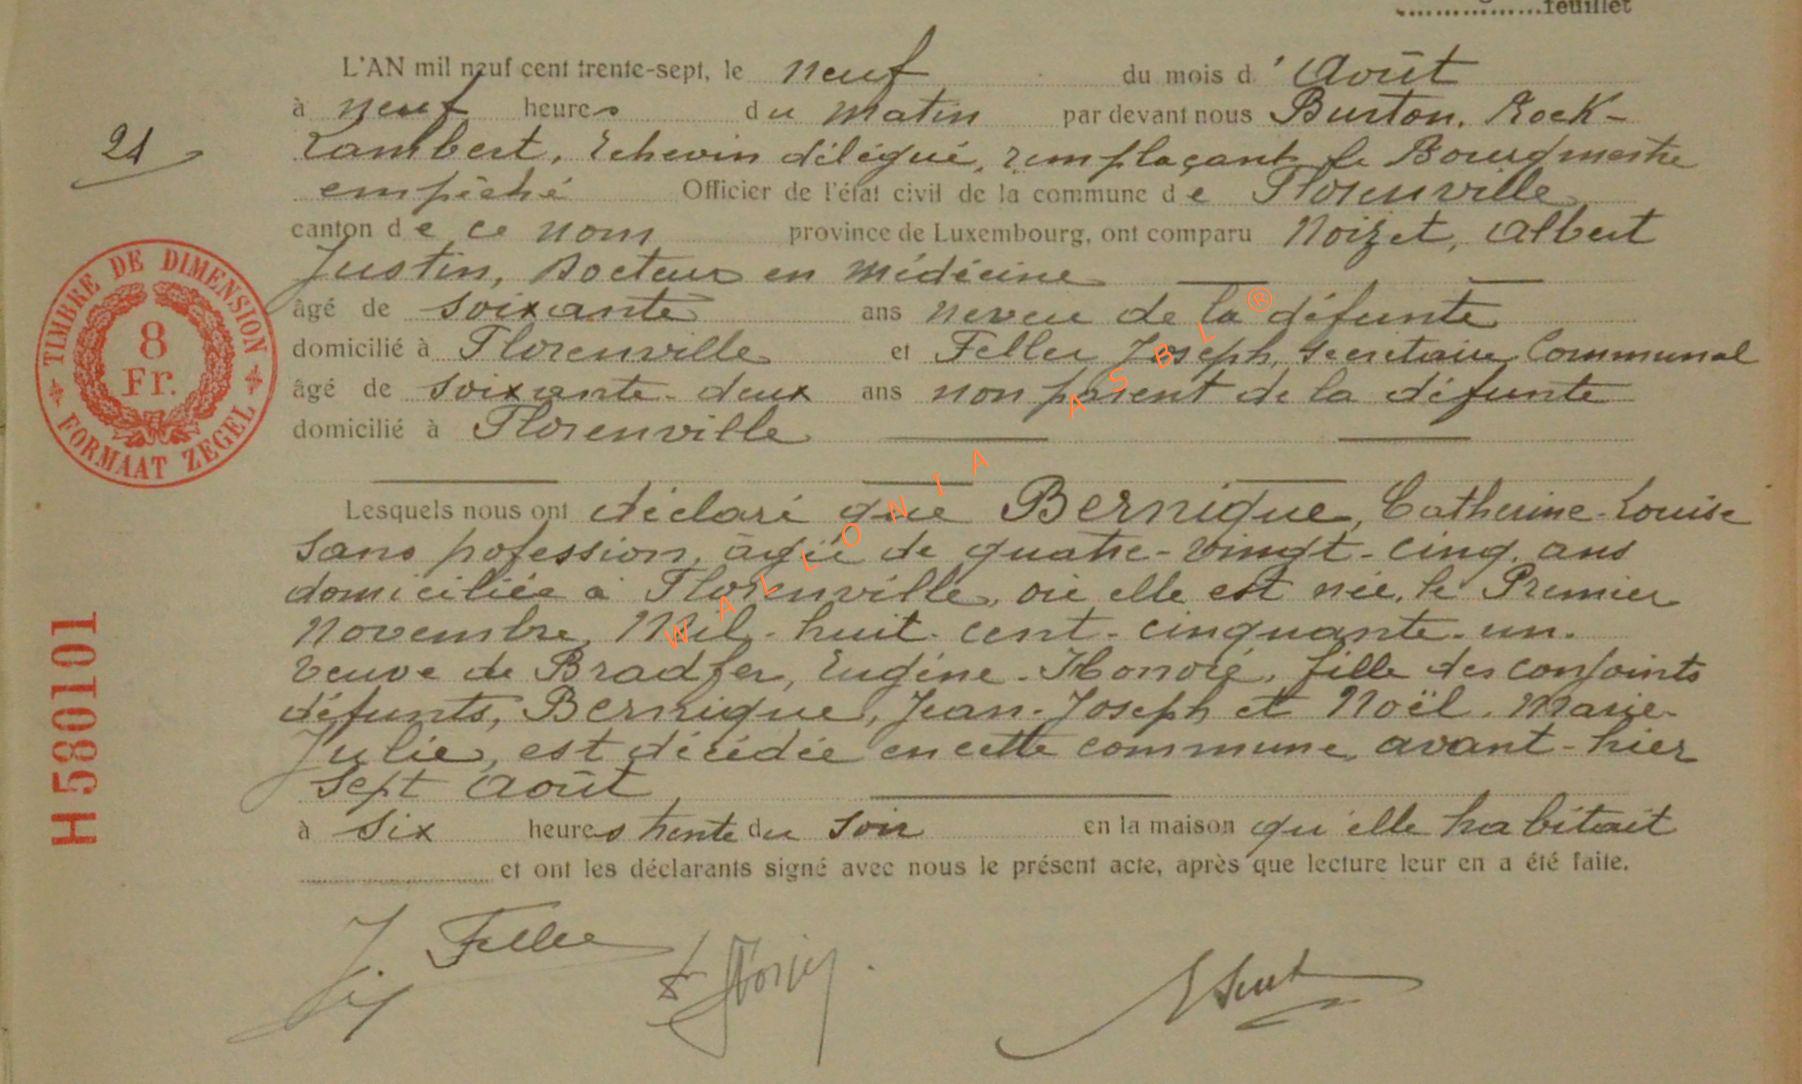 feuillet
L'AN mil neuf cent trente-sept, le neuf du mois d' Août
à neuf heures du matin par devant nous Burton, Rock-
Lambert, Echevin délégué, remplaçant le Bourgmestre
empêché Officier de l'état civil de la commune de Florenville
canton de ce nom province de Luxembourg, ont comparu Noizet, Albert
Justin, Docteur en Médécine
âgé de soixante ans neveu de la défunte
domicilié à Florenville et Feller Joseph, Secrétaire Communal
âgé de soixante-deux ans non parent de la défunte
domicilié à Florenville
Lesquels nous ont déclaré que Bernique, Catherine-Louise
sans pofession, âgée de quatre-vingt-cinq ans
domiciliée à Florenville, où elle est née, le Premier
Novembre, Mil-huit-cent-cinquante-un.
veuve de Bradfer, Eugène-Honoré, fille des conjoints
défunts, Bernique, Jean-Joseph et Noël, Marie-
Julie, est décédée en cette commune, avant-hier
sept Août
à six heures trente du soir en la maison qu'elle habitait
et ont les déclarants signé avec nous le présent acte, après que lecture leur en a été faite.
J. Feller
21
TIMBRE DE DIMENSION
8
Fr.
FORMAAT ZEGEL
H580101
WALLONIA ASBL ®